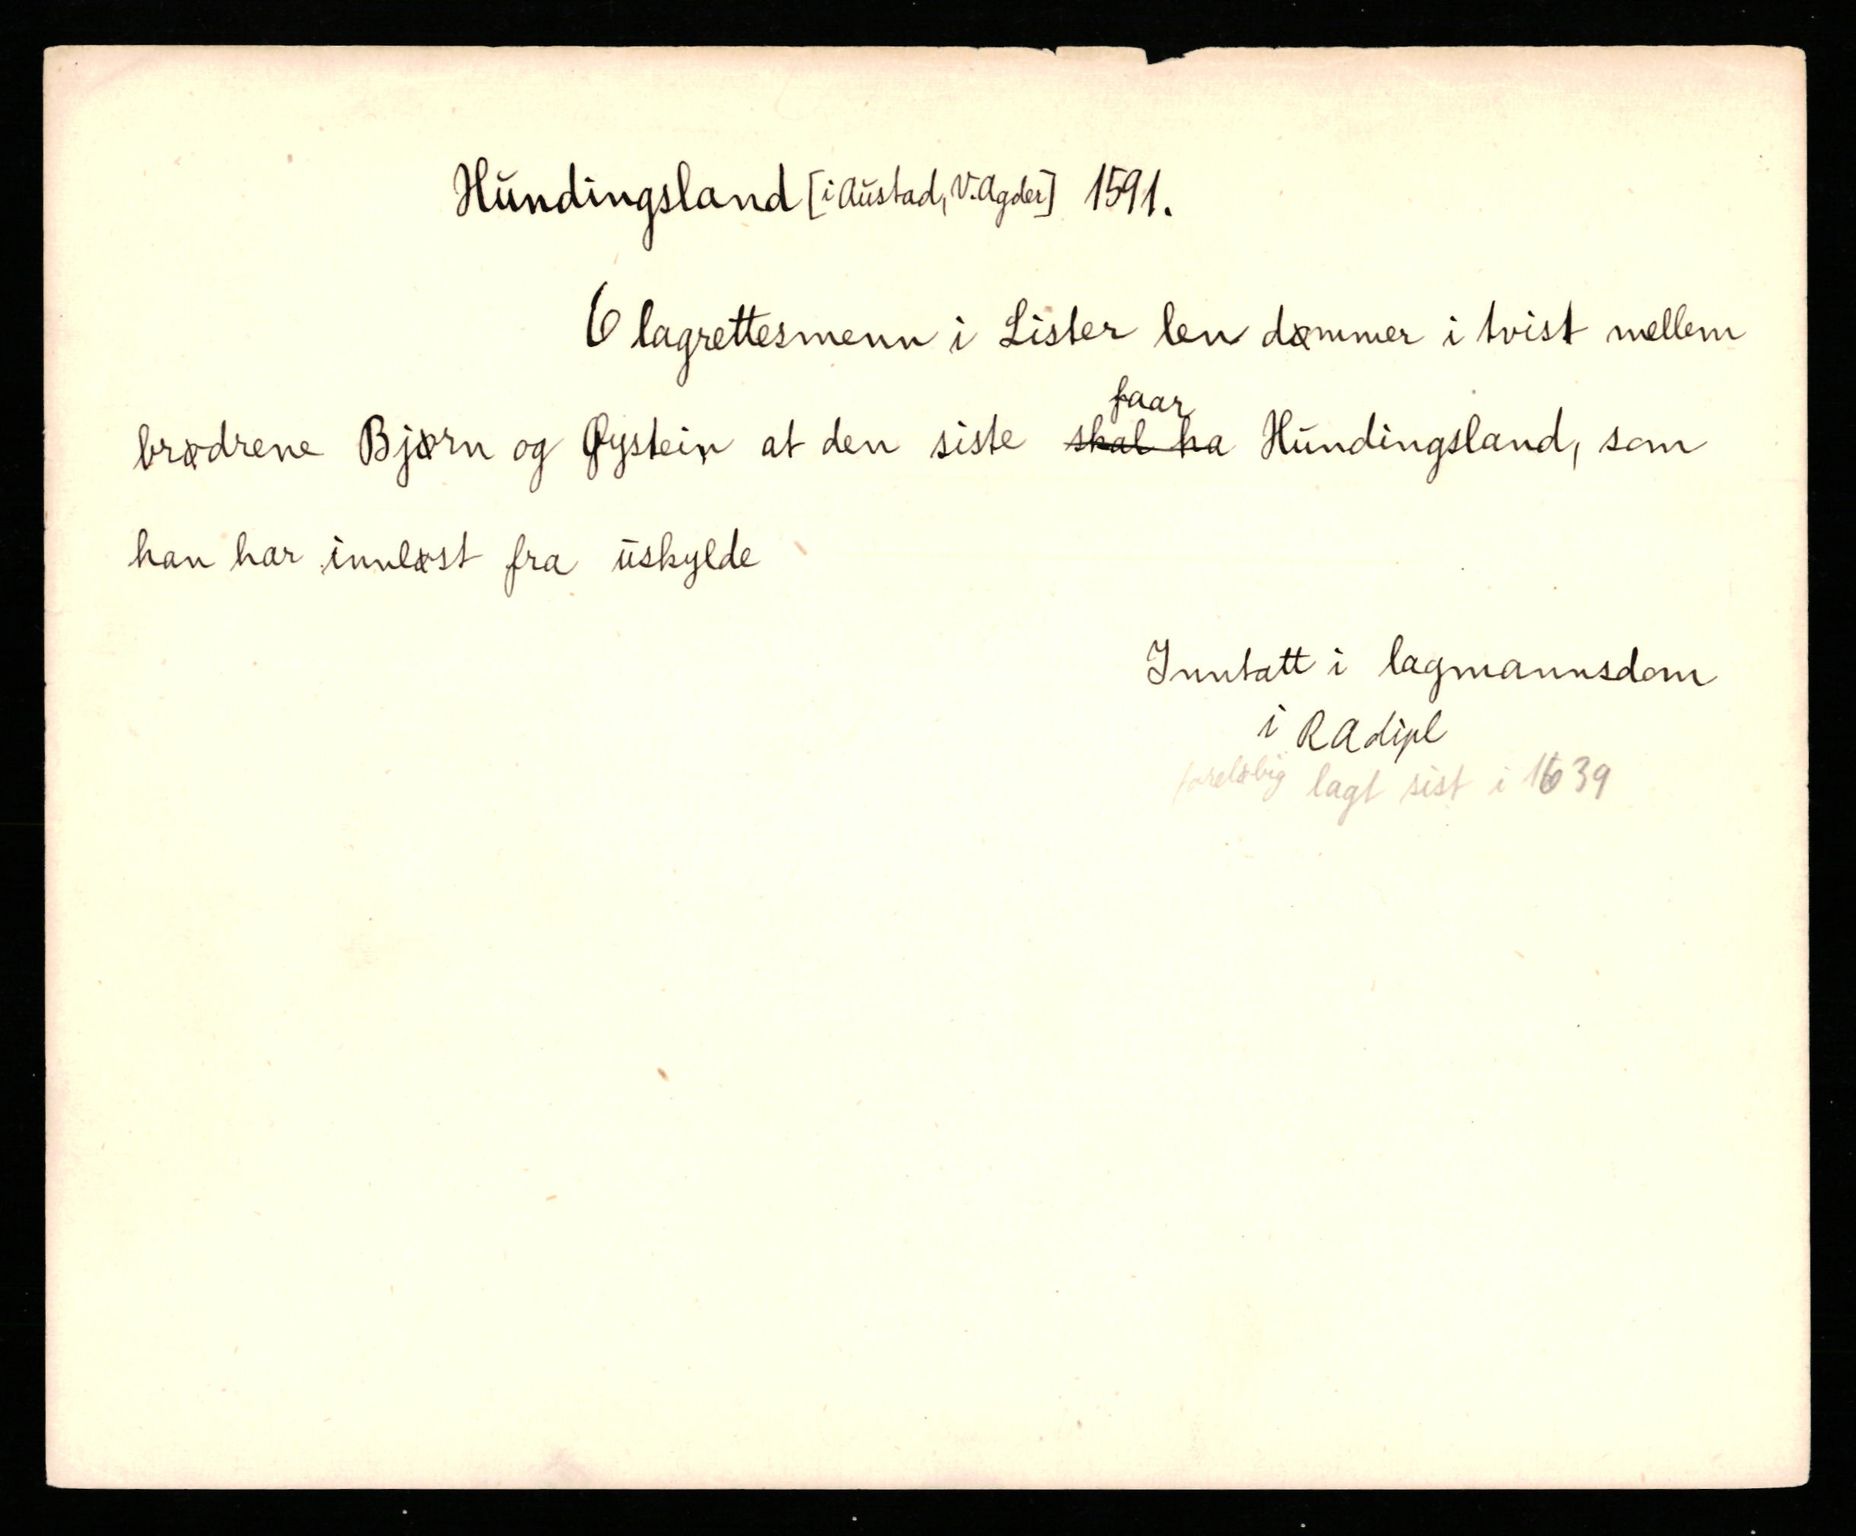 Hundingsland [i Austad, V. Agder] 1591.
6 lagrettesmenn i Lister len dømmer i tvist mellem
faar
brødrene Bjørn og Øystein at den siste skal ha Hundingsland, som
han har innløst fra uskylde
Inntatt i lagmannsdom
i RA dipl
foreløbig lagt sist i 1639